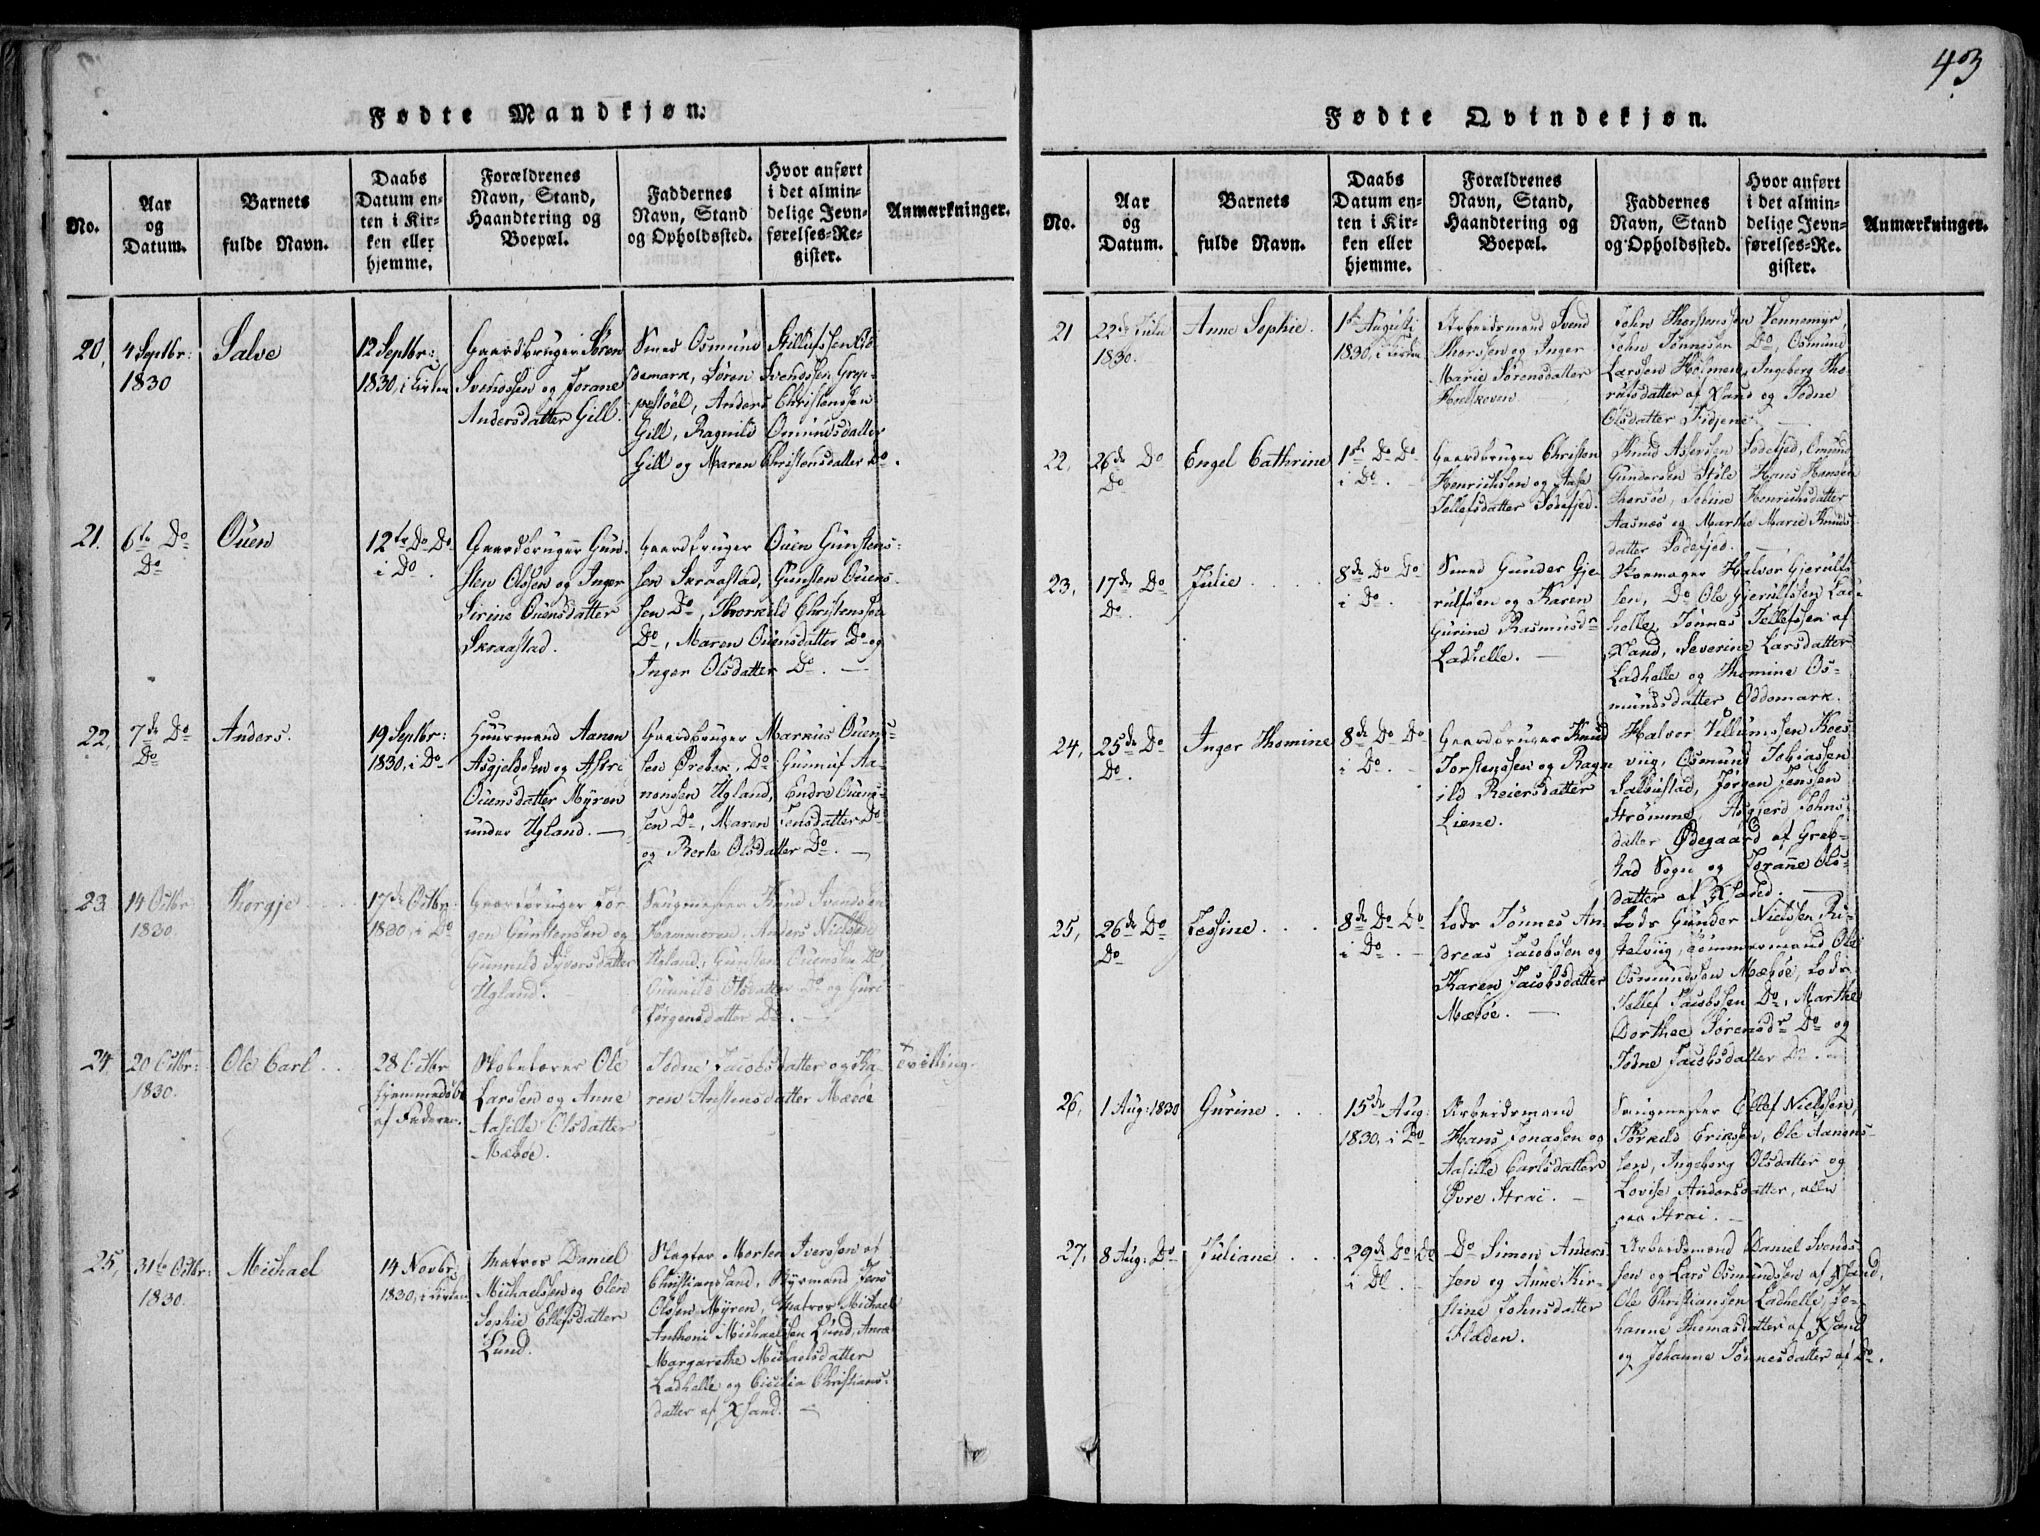 43
Fødte Mandkjøn.
No.
Aar
og
Datum.
Barnets
fulde Navn.
Daabs
Datum en-
ten i Kir-
ken eller
hjemme.
Forældrenes
Navn, Stand,
Haandtering og
Boepæl.
Faddernes
Navn, Stand
og Opholdssted.
Hvor anført
i det almin-
delige Jevn-
førelses-Re-
gister.
Anmærkninger.
20,
4 Septbr:
1830
Salve
12 Septbr:
1830, i Kirken
Gaardbruger Søren
Svendssen og Jorane
Andersdatter Gill.
Smed Osmund Stillufssen Od-
demark, Søren Svendssen Grop-
pestöel, Anders Christenssen
Gill, Ragnild Omundsdatter
Gill og Maren Christensdatter Do.
21.
6te Do
Do
Ouen
12te Do Do
i Do.
Gaardbruger Gun-
sten Olssen og Inger
Sirine Ouensdatter
Skraastad.
Gaardbruger Ouen Gunstens-
sen Skraastad, Gunsten Ouens-
sen Do, Thorkild Christenssen
Do, Maren Ouensdatter Do og
Inger Olsdatter Do. —
22,
7de Do
Do
Anders.
19 Septbr:
1830, i Do
Huusmand Aanen
Asgjeldsen og Astri
Ouensdatter Myren
under Ugland. —
Gaardbruger Markus Ouens-
sen Örebek, Do Gunnuf Aa-
nonsen Ugland, Endre Ouens-
sen Do, Maren Jensdatter Do
og Berte Olsdatter Do. —
23.
14 Octbr
1830.
Thorgje
17de Octbr
1830, i Do
Gaardbruger Jör-
gen Gunstensen og
Gunnild Syversdatter
Ugland. —
Saugmester Knud Svendsen
Hammeren, Anders Nielssen
Ugland, Gunsten Ouensen Do
Gunnild Olsdatter Do og Guri
Jörgensdatter Do. —
24.
20 Octbr:
1830.
Ole Carl.
28 Octbr
hjemmedöbt
af Faderen.
Skolelærer Ole
Larssen og Anne
Aasille Olsdatter
Mæböe.
Todne Jacobsdatter og Ka-
ren Anstensdatter Mæböe
Tvilling.
25,
31te Octbr:
1830.
Michael
14 Novbr:
1830, i Kirken
Matros Daniel
Michaelssen og Elen
Sophie Ellefsdatter
Lund.
Slagter Morten Iverssen af
Christiansand, Styrmand Jens
Olssen Myren, Matros Michael
Anthoni Michaelsen Lund, Anne
Margarethe Michaelsdatter
Ladhelle og Cicilia Christians-
datter af Xsand. —
Fødte Qvindekjøn.
No.
Aar
og
Datum.
Barnets
fulde Navn.
Daabs
Datum en-
ten i Kir-
ken eller
hjemme.
Forældrenes
Navn, Stand,
Haandtering og
Boepæl.
Faddernes
Navn, Stand
og Opholdssted.
Hvor anført
i det almin-
delige Jevn-
førelses-Re-
gister.
Anmærkninger.
21
22de Julii
1830.
Anne Sophie.
1ste Augusti
1830, i Kirken
Arbeidsmand Svend
Thorssen og Inger
Marie Sörensdatter
John Thorstenssen Vennemyr,
John Tönnessen Do, Osmund
Larssen Holmen, Ingeborg Tho-
rufsdatter af Xsand og Todne
Olsdatter Fidjene. —
22,
26de Do
Do
Engel Cathrine
1ste Do Do
i Do. —
Gaardbruger Christen
Henrichssen og Aase
Tellefsdatter Dödefjed.
Knud Assersen Dödefjed, Omund
Gundersen Stöle, Hans Hansen
Thorsöe, Serine Henrichsdatter
Aasnæs og Marthe Marie Knuds-
datter Dödefjed. —
23,
17de Do
Do.
Julie
8de Do Do
i Do.
Smed Gunder Gje-
rulfsen og Karen
Gurine Rasmusdr
Ladhelle. —
Skomager Halvor Gjerulfs-
sen, Do Ole Gjerulfssen Lad-
helle, Tönnes Tellefssen af
Xsand, Severine Larsdatter
Ladhelle og Thomine Os-
mundsdatter Oddemark.
24,
25de Do
Do.
Inger Thomine
8de Do Do
i Do. —
Gaardbruger Knud
Torstenssen og Ragn-
ild Reiersdatter
Liene.
Halvor Villumssen Koes-
viig, Osmund Tobiassen
Salbustad, Jörgen Jenssen
Strömme, Asgjerd Johns-
datter Ödegaard af Greb-
stad Sogn og Joranne Ols-
datter af Xsand. —
25,
26de Do
Do
Jessine
8de Do Do
i Do. —
Lods Tönnes An-
dreas Jacobssen og
Karen Jacobsdatter
Mæböe. —
Lods Gunder Nielssen Ki-
telviig, Tömmermand Ole
Osmundssen Mæböe, Lods
Tellef Jacobssen Do, Marthe
Dorthee Sörensdr Do og
Todne Jacobsdatter Do. —
26,
1 Aug: 1830
Gurine
15de Aug:
1830, i Do
Arbeidsmand
Hans Jonassen og
Aasille Carlsdatter
Övre Strai. —
Saugmester Ellef Nielssen,
Törkild Erikssen, Ole Aanons-
sen, Ingeborg Olsdatter og
Lovise Andersdatter, alle
paa Strai. —
27,
8 Aug: Do
Juliane
29de Do Do
i Do. —
Do Simon Anders-
sen og Anne Kir-
stine Johnsdatter
Fladen.
Arbeidsmand Daniel Svends-
sen og Lars Osmundssen af Xsand,
Ole Christianssen Ladhelle, Jo-
hanne Thomasdatter af Xsand
og Johanne Tönnesdatter af Do.